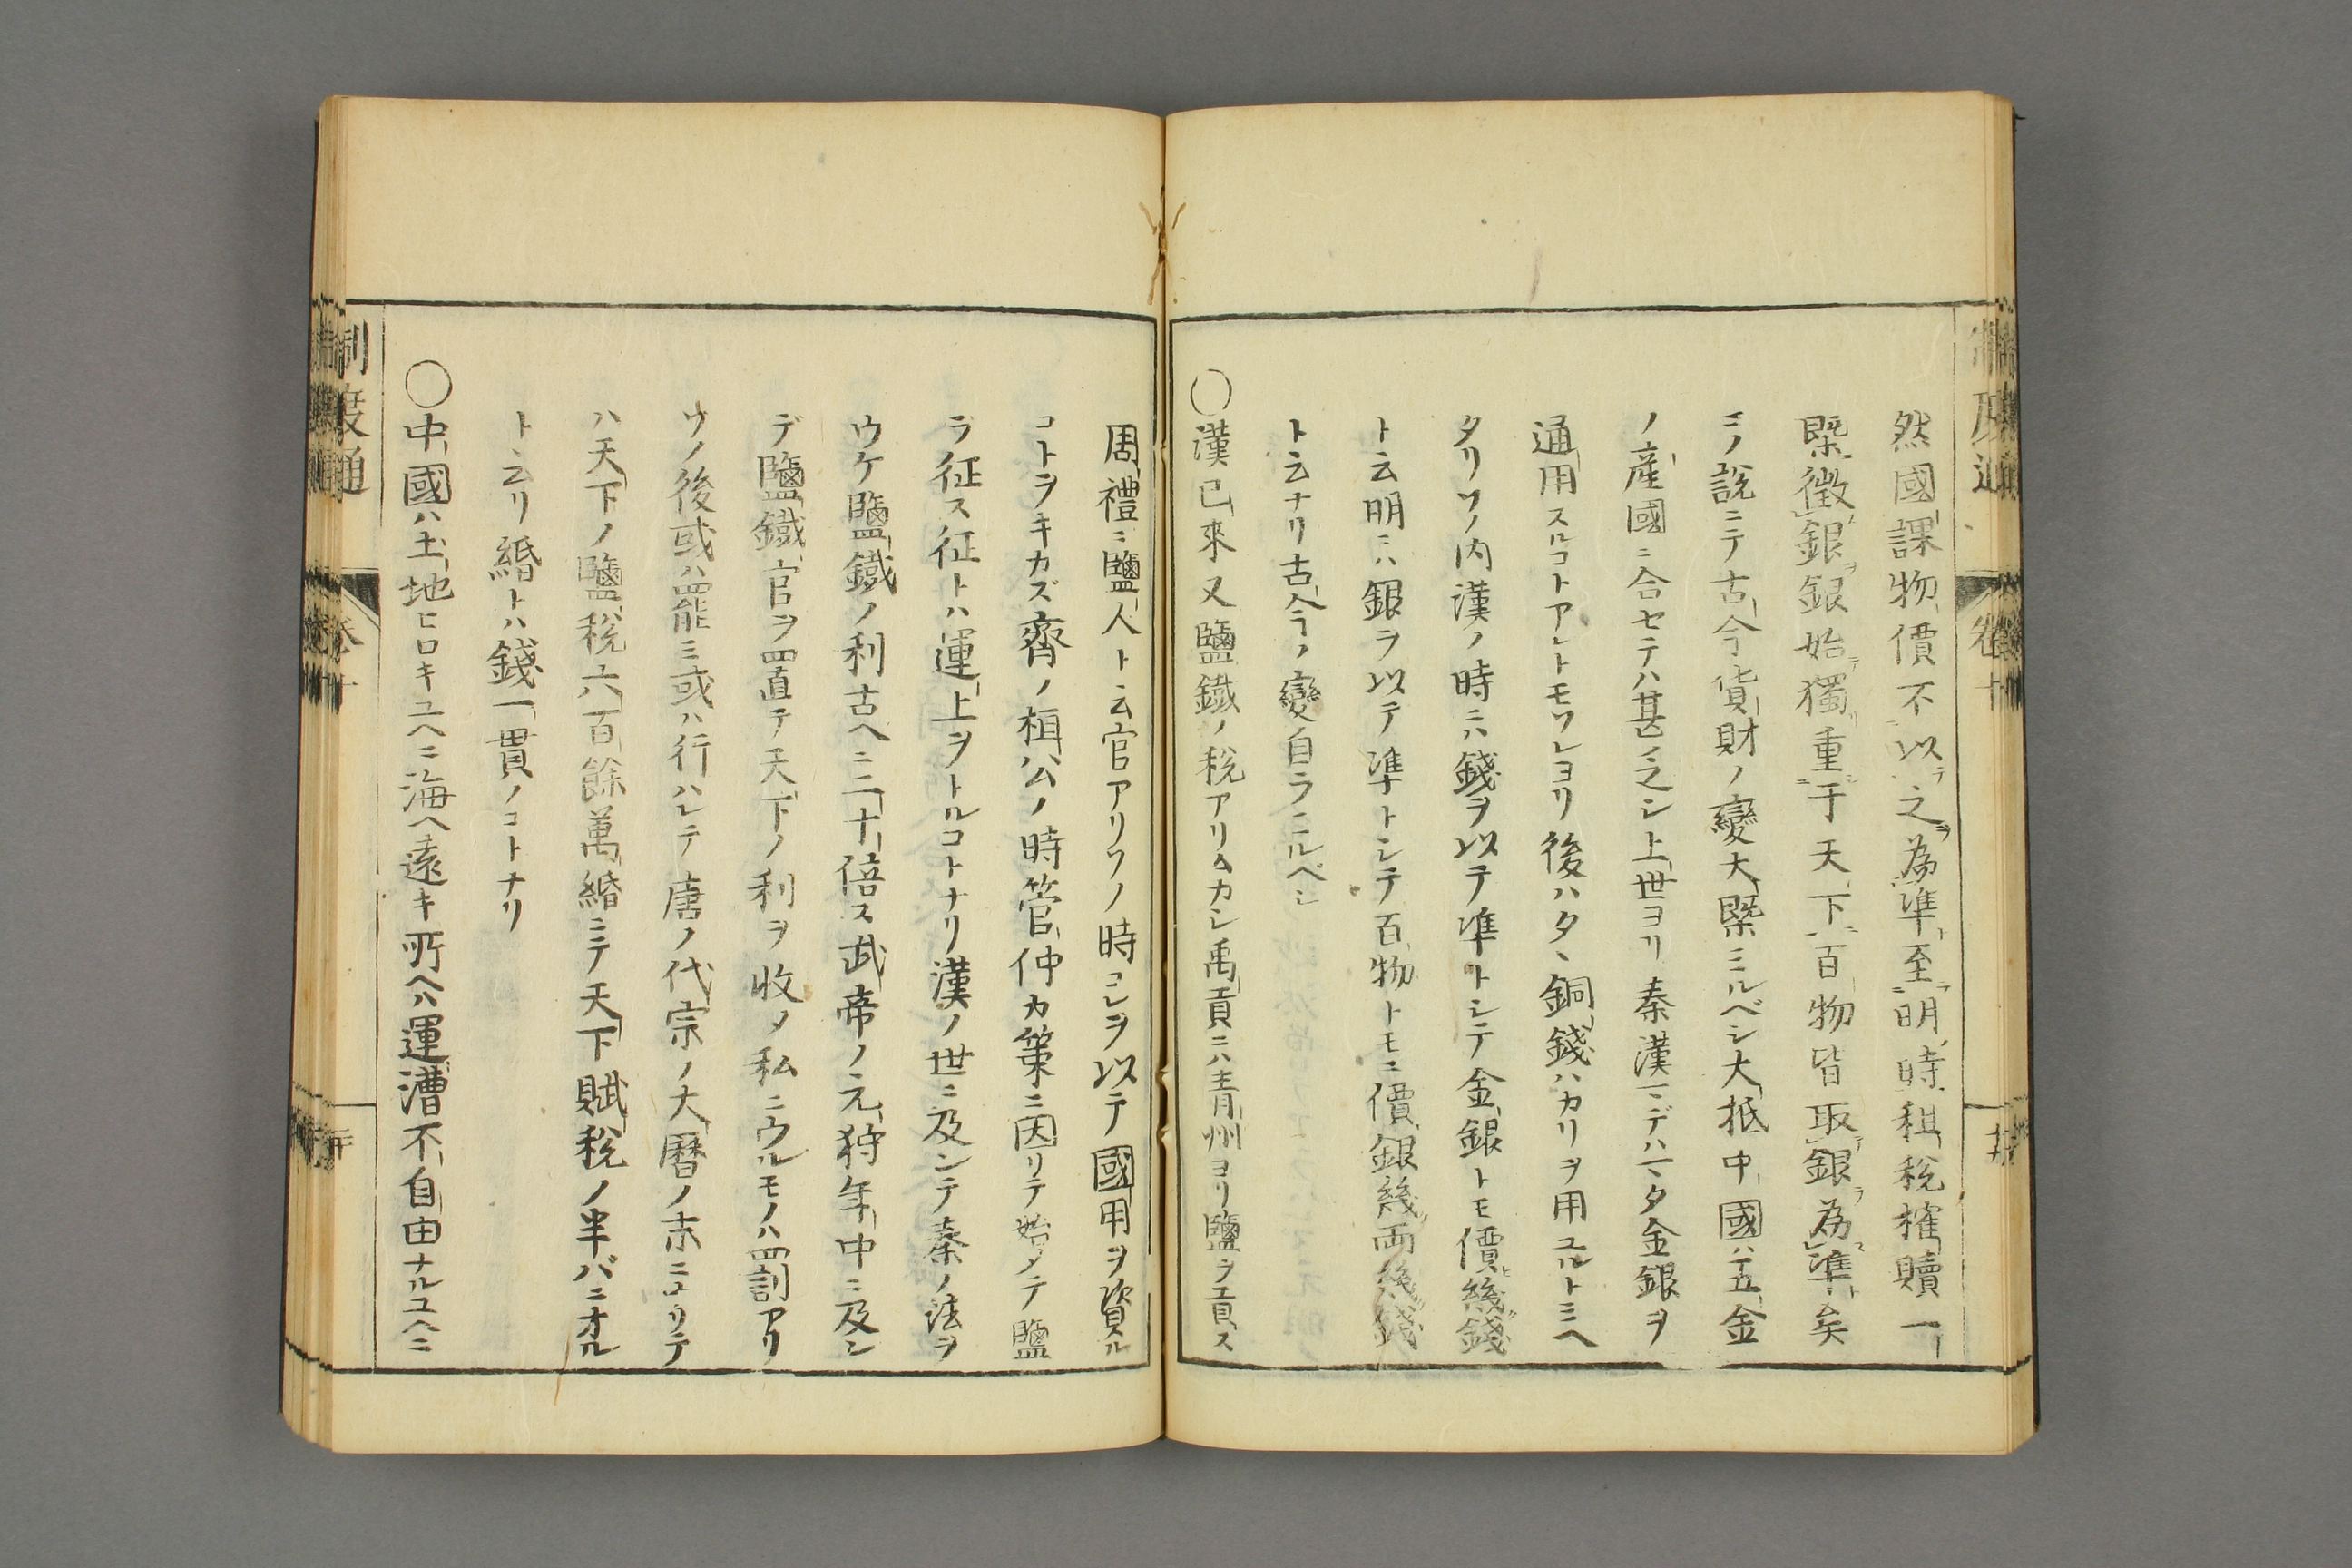 然國課物價不以之為準至明時租稅榷贖一
槩徵銀銀始獨重于天下百物皆取銀為準矣
ミノ説ニテ古今貨財ノ變大槩ミルベシ大抵中國ハ五金
ノ産國ニ合セテハ甚乏シ上世ヨリ秦漢マデハマタ金銀ヲ
通用スルコトアレトモソレヨリ後ハタヽ銅錢ハカリヲ用ユルトミヘ
タリソノ内漢ノ時ニハ錢ヲ以テ準トシテ金銀トモ價幾錢
ト云明ニハ銀ヲ以テ準トシテ百物トモニ價銀幾兩幾錢
ト云ナリ古今ノ變自ラミルベシ
○漢已來又鹽鐵ノ税アリムカシ禹貢ニハ青州ヨリ鹽ヲ貢ス
周禮ニ鹽人ト云官アリソノ時コレヲ以テ國用ヲ資ル
コトヲキカズ齊ノ桓公ノ時管仲カ策ニ因リテ始メテ鹽
ヲ征ス征トハ運上ヲトルコトナリ漢ノ世ニ及ンテ秦ノ法ヲ
ウケ鹽鐵ノ利古ヘニ二十倍ス武帝ノ元狩年中ニ及ン
デ鹽鐵官ヲ置テ天下ノ利ヲ收メ私ニウルモノハ罰アリ
ソノ後或ハ罷ミ或ハ行ハレテ唐ノ代宗ノ大曆ノ末ニヨリテ
ハ天下ノ鹽税六百餘萬緡ニテ天下賦税ノ半バニオル
ト云リ緡トハ錢一貫ノコトナリ
○中國ハ土地ヒロキユヘニ海ヘ遠キ所ヘハ運漕不自由ナルユヘニ
制度通
卷十